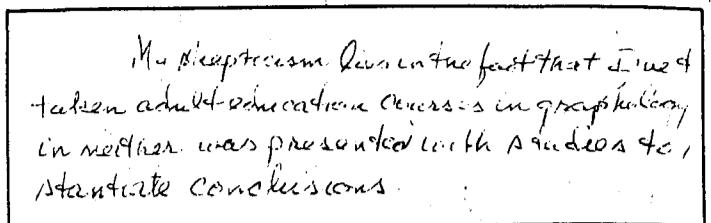 My skepticism lives in the fact that I've
taken adult education courses in graphology
in neither was presented with studies to
stantiate conclusions.